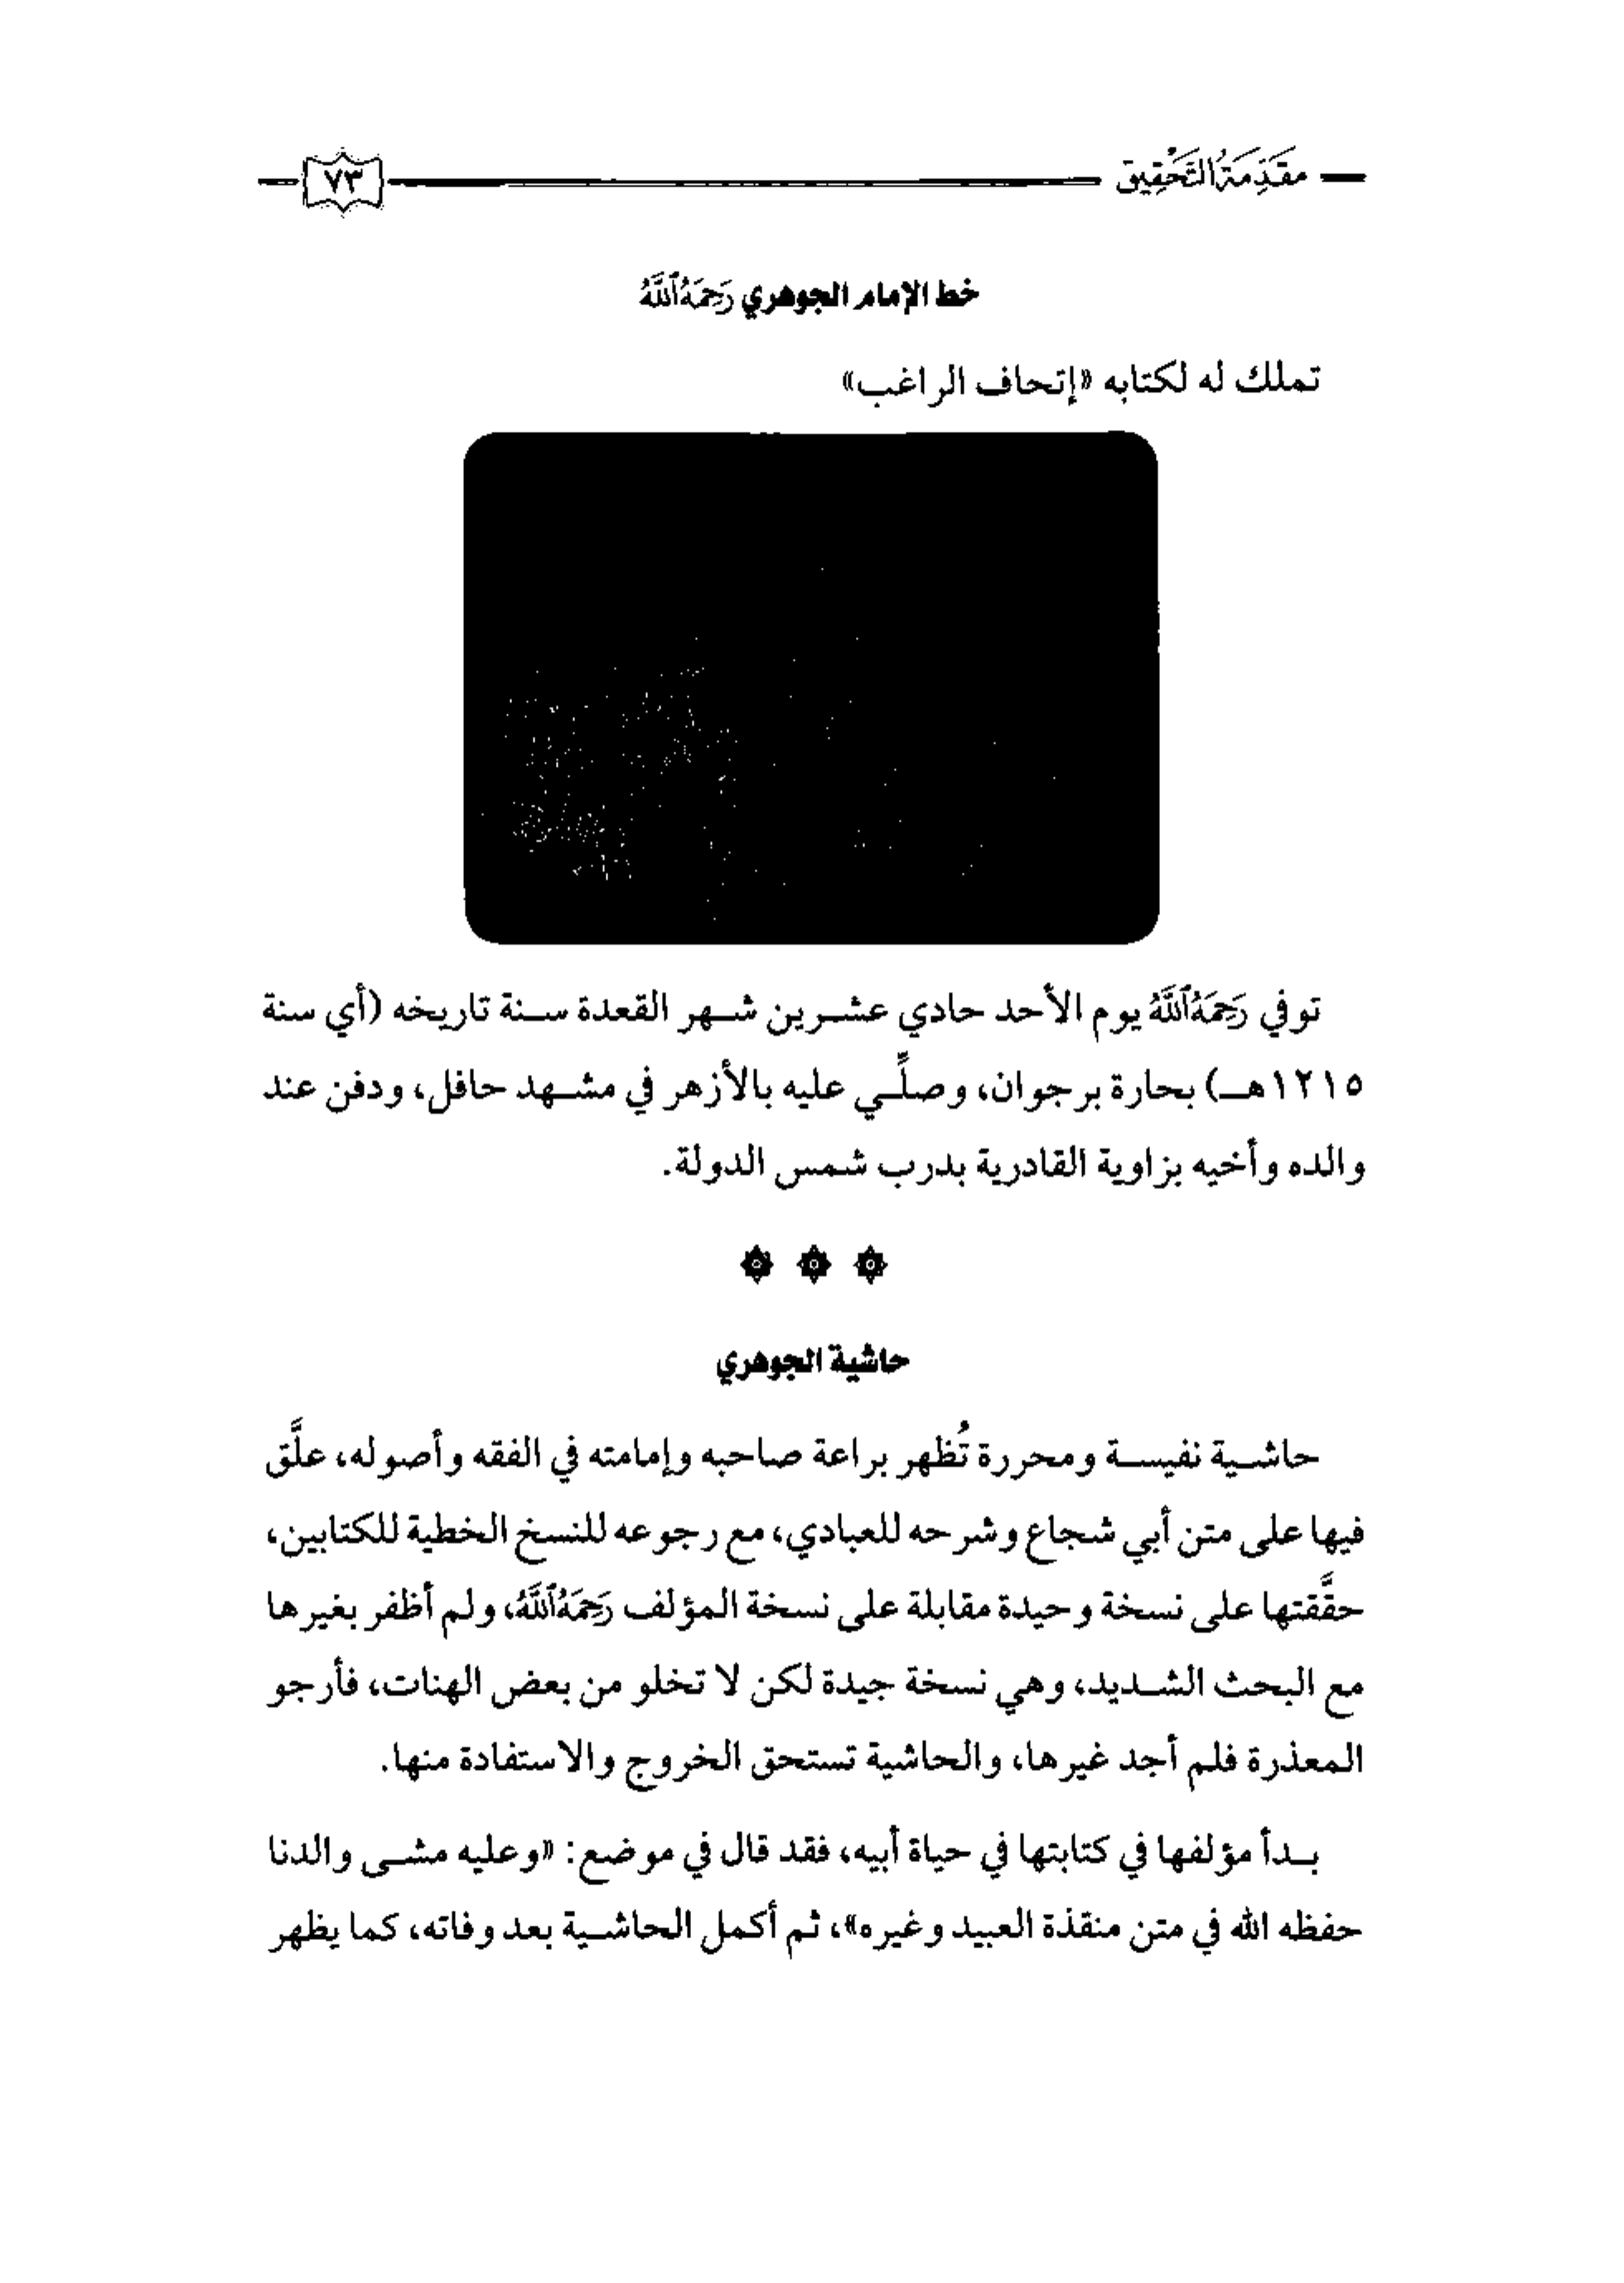 مقدمة التحقيق ٧٣
خط الإمام الجوهري رَحِمَهُ ٱللَّهُ
تملك له لكتابه «إتحاف الراغب»
توفي رَحِمَهُ ٱللَّهُ يوم الأحد حادي عشرين شهر القعدة سنة تاريخه (أي سنة
١٢١٥هـ) بحارة برجوان، وصلِّي عليه بالأزهر في مشهد حافل، ودفن عند
والده وأخيه بزاوية القادرية بدرب شمس الدولة.
حاشية الجوهري
حاشية نفيسة ومحررة تُظهر براعة صاحبه وإمامته في الفقه وأصوله، علَّق
فيها على متن أبي شجاع وشرحه للعبادي، مع رجوعه للنسخ الخطية للكتابين،
حقَّقتها على نسخة وحيدة مقابلة على نسخة المؤلف رَحِمَهُ ٱللَّهُ، ولم أظفر بغيرها
مع البحث الشديد، وهي نسخة جيدة لكن لا تخلو من بعض الهنات، فأرجو
المعذرة فلم أجد غيرها، والحاشية تستحق الخروج والاستفادة منها.
بدأ مؤلفها في كتابتها في حياة أبيه، فقد قال في موضع: «وعليه مشى والدنا
حفظه الله في متن منقذة العبيد وغيره»، ثم أكمل الحاشية بعد وفاته، كما يظهر